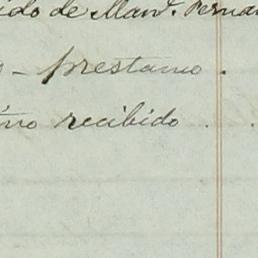 ido de Man.l Perna
- prestamo .
ino recibido . .